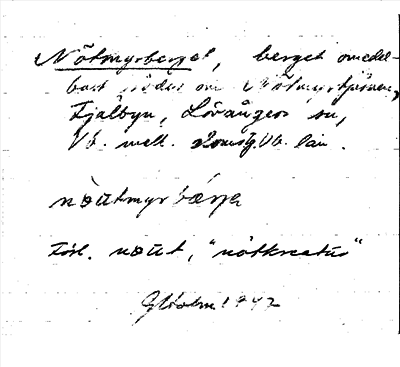 Nötmyrberget, berget omedel-
bart söder om Nötmyrtjärnen,
Fjälbyn, Lövångers sn,
Vb. mell. domsg. Vb. län.
nøutmyrbærje
Förl. nøut, "nötkreatur"
GHolm 1942